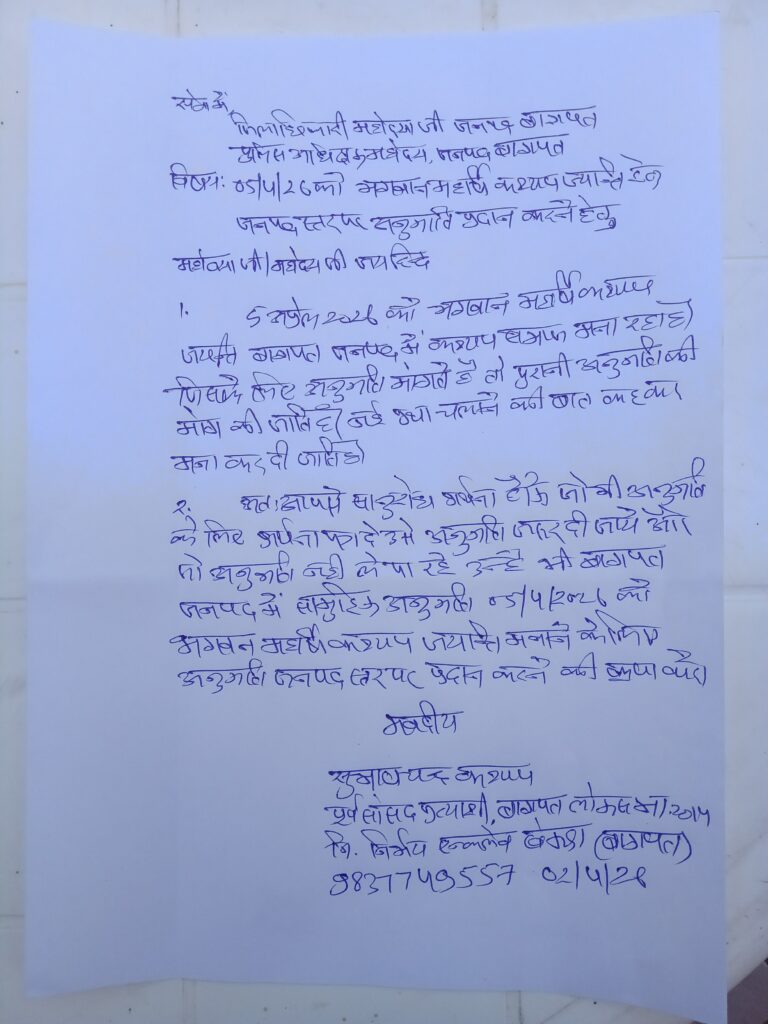 सेवा में,
जिलाधिकारी महोदया जी जनपद बागपत
पुलिस अधिक्षक महोदय, जनपद बागपत
विषय: 05/4/26 को भगवान महर्षि कश्यप जयान्ति हेतु
जनपद स्तर पर अनुमति प्रदान करने हेतु
महोदया जी/महोदय जी जयहिन्द
1. 5 अप्रैल 2026 को भगवान महर्षि कश्यप
जयन्ति बागपत जनपद में कश्यप समाज मना रहा है।
जिसके लिए अनुमति मांगते है तो पुरानी अनुमति की
मांग की जाति है। नई प्रथा चलाने की बात कहकर
मना कर दी जाति है।
2. अतः आपसे सानुरोध प्रार्थना है कि जो भी अनुमति
के लिए प्रार्थना पत्र दे उसे अनुमति जरूर दी जाये और
जो अनुमति नही ले पा रहे उन्हे भी बागपत
जनपद में सामुहिक अनुमति 05/4/2026 को
भगवान महर्षि कश्यप जयान्ति मनाने के लिए
अनुमति जनपद स्तर पर प्रदान करने की कृपा करे।
भवदीय
सुभाष चन्द कश्यप
पूर्व सांसद प्रत्याशी, बागपत लोकसभा 2014
नि. निर्भय एन्कलेव खेकड़ा (बागपत)
9837749557 02/4/26